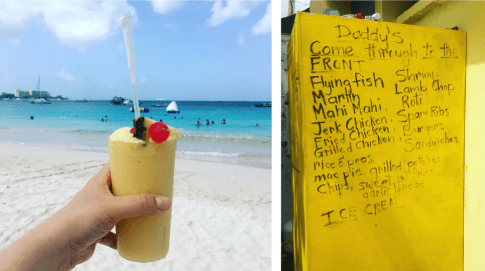 Daddy's
Come through to the
FRONT
Flying fish Shrimp
Marlin Lamb Chop
Mahi Mahi, Roti
Jerk Chicken, Spare Ribs
Fried Chicken, Burgers
Grilled Chicken, Sandwiches
rice & peas
mac pie, grilled potatoes
Chips, sweet
garlic bread
ICE CREA